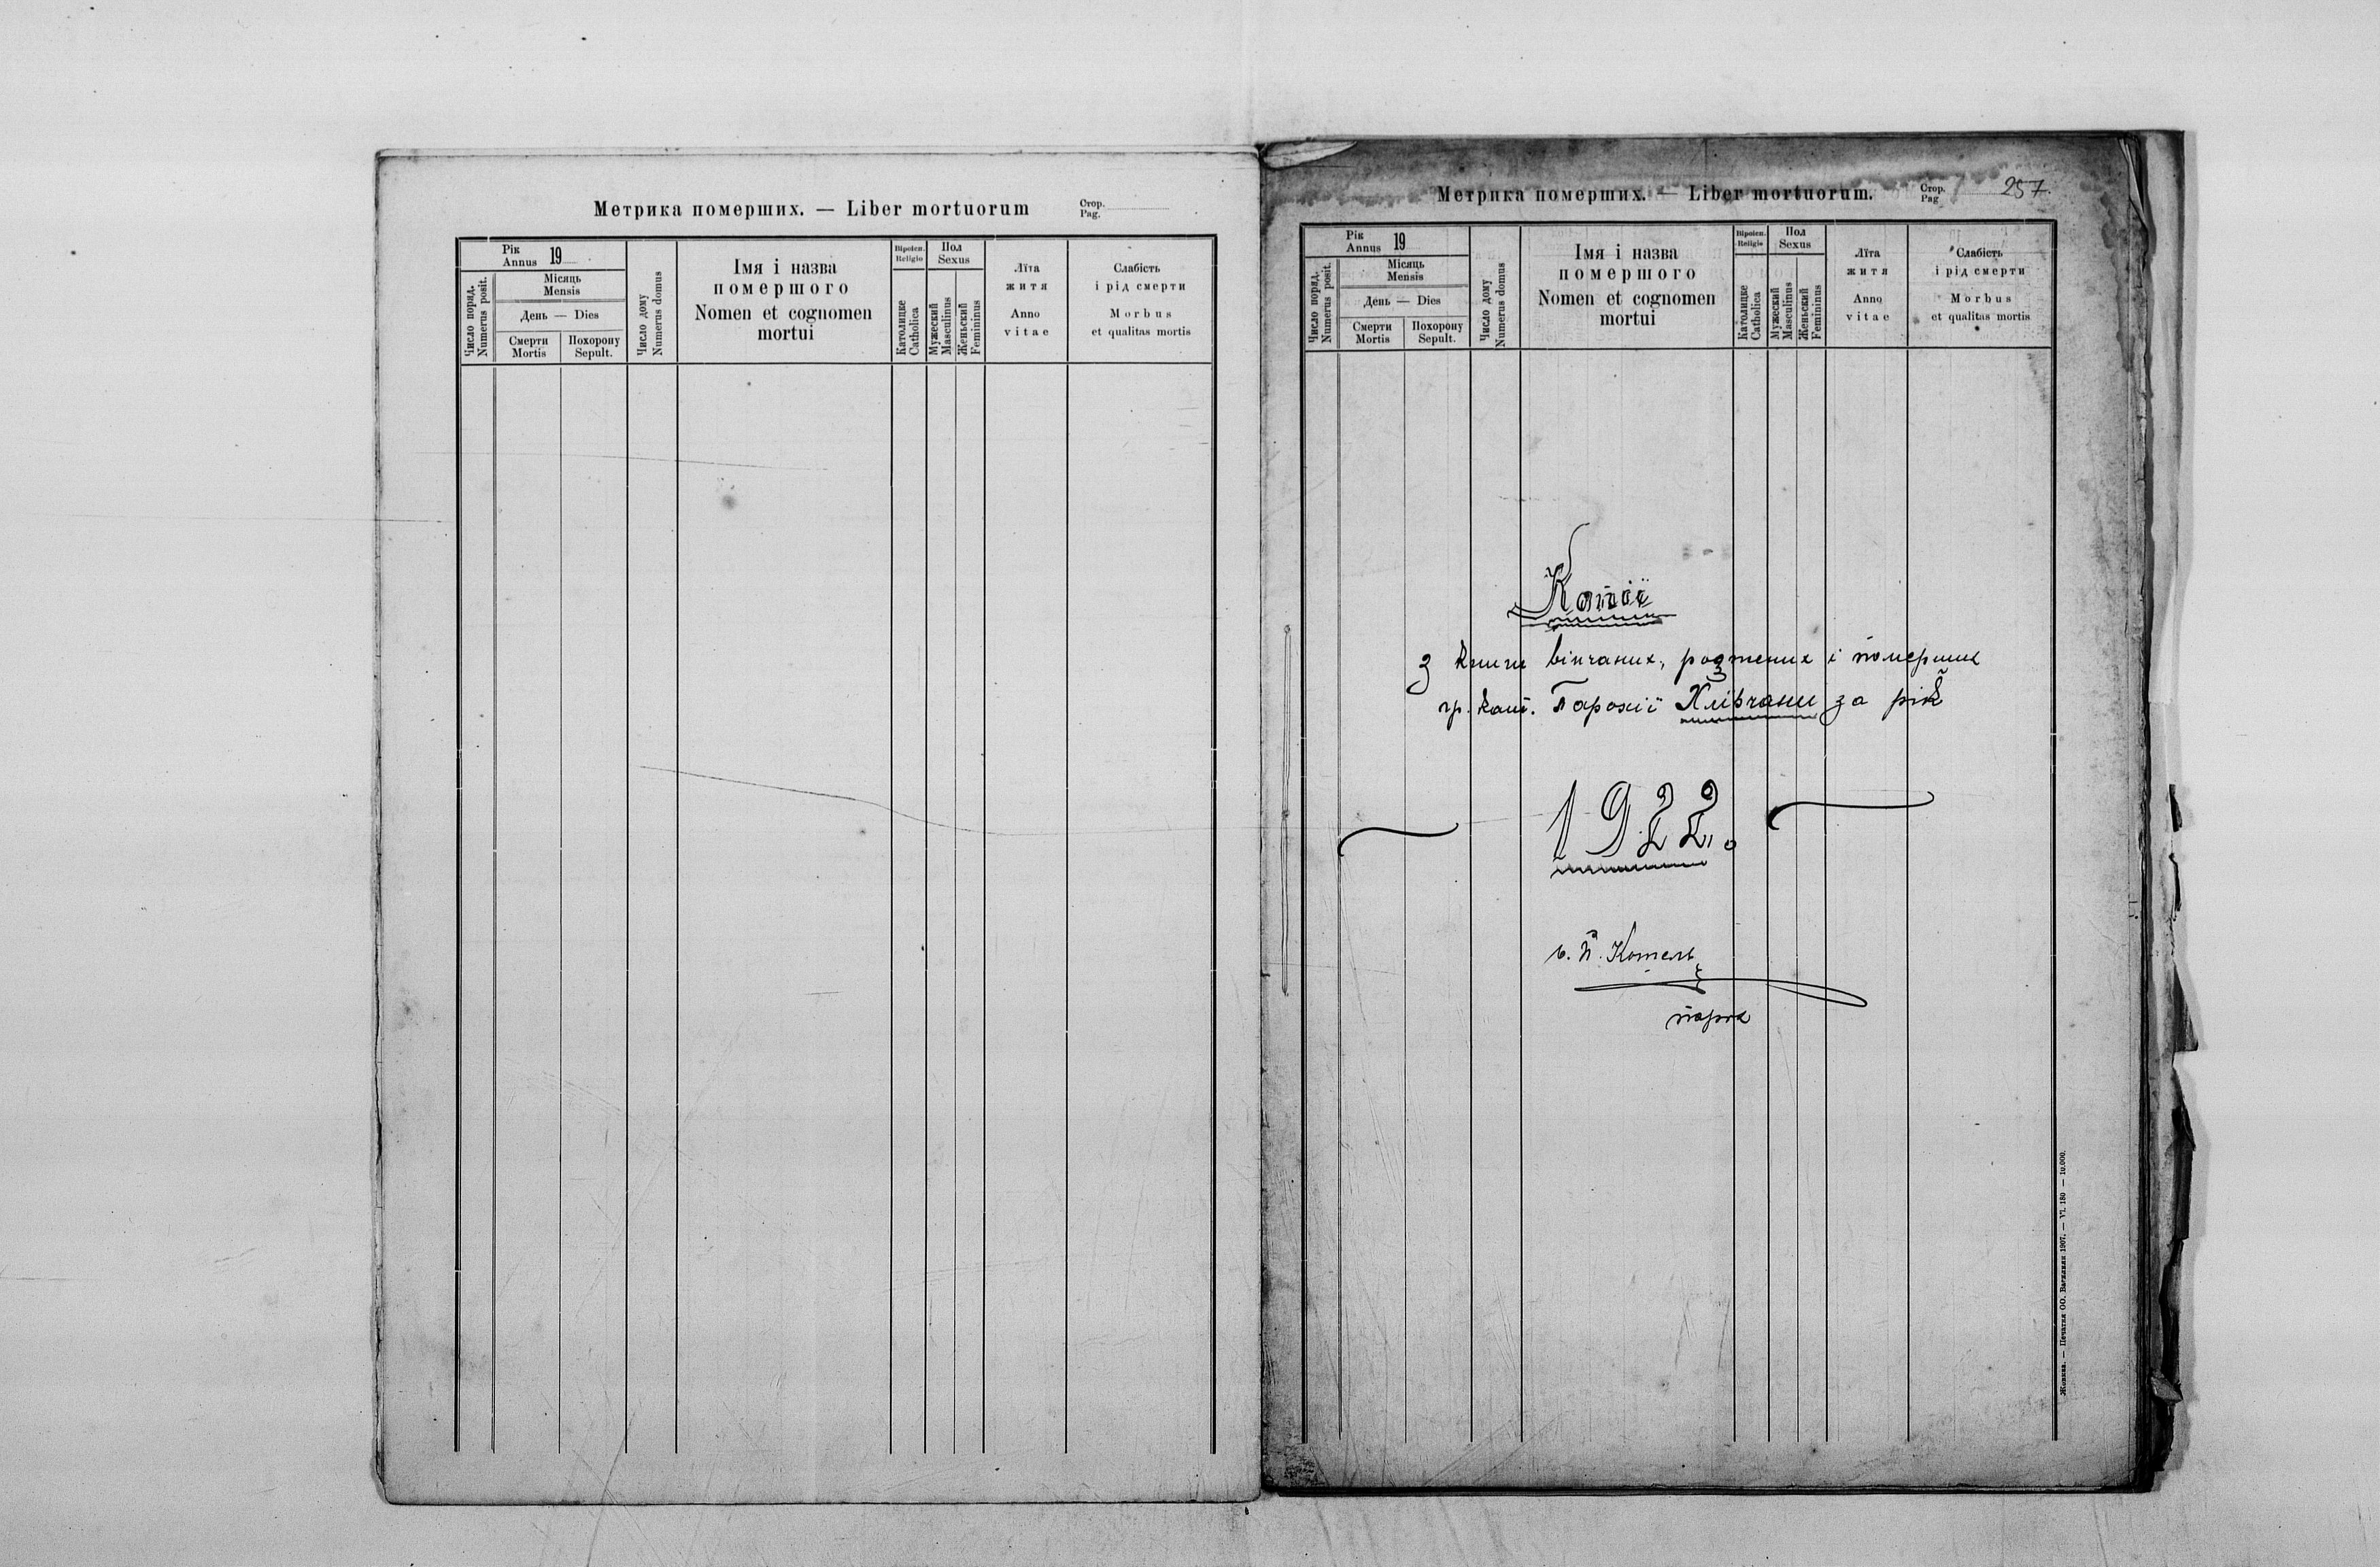 Метрика померших. — Liber mortuorum
Стор.
Pag.
Рік
Annus 19
Місяць
Mensis
День — Dies
Число поряд.
Numerus posit.
Смерти
Mortis
Похорону
Sepult.
Число дому
Numerus domus
Імя і назва
помершого
Nomen et cognomen
mortui
Віроісп.
Religio
Католицке
Catholica
Пол
Sexus
Мужеский
Masculinus
Женьский
Femininus
Лїта
житя
Anno
vitae
Слабість
і рід смерти
Morbus
et qualitas mortis
Метрика померших. — Liber mortuorum.
Стор.
Pag
257.
Рік
Annus 19
Місяць
Mensis
День — Dies
Число поряд.
Numerus posit.
Смерти
Mortis
Похорону
Sepult.
Число дому
Numerus domus
Імя і назва
помершого
Nomen et cognomen
mortui
Віроісп.
Religio
Католицке
Catholica
Пол
Sexus
Мужеский
Masculinus
Женьский
Femininus
Лїта
житя
Anno
vitae
Слабість
і рід смерти
Morbus
et qualitas mortis
Копії
з книги вінчаних, рождених і померших
гр. кат. Парохії Хлівчани за рік
1922.
Котель
парох
Жовква. — Печатня ОО. Василиян 1907. — VI. 180 — 10.000.